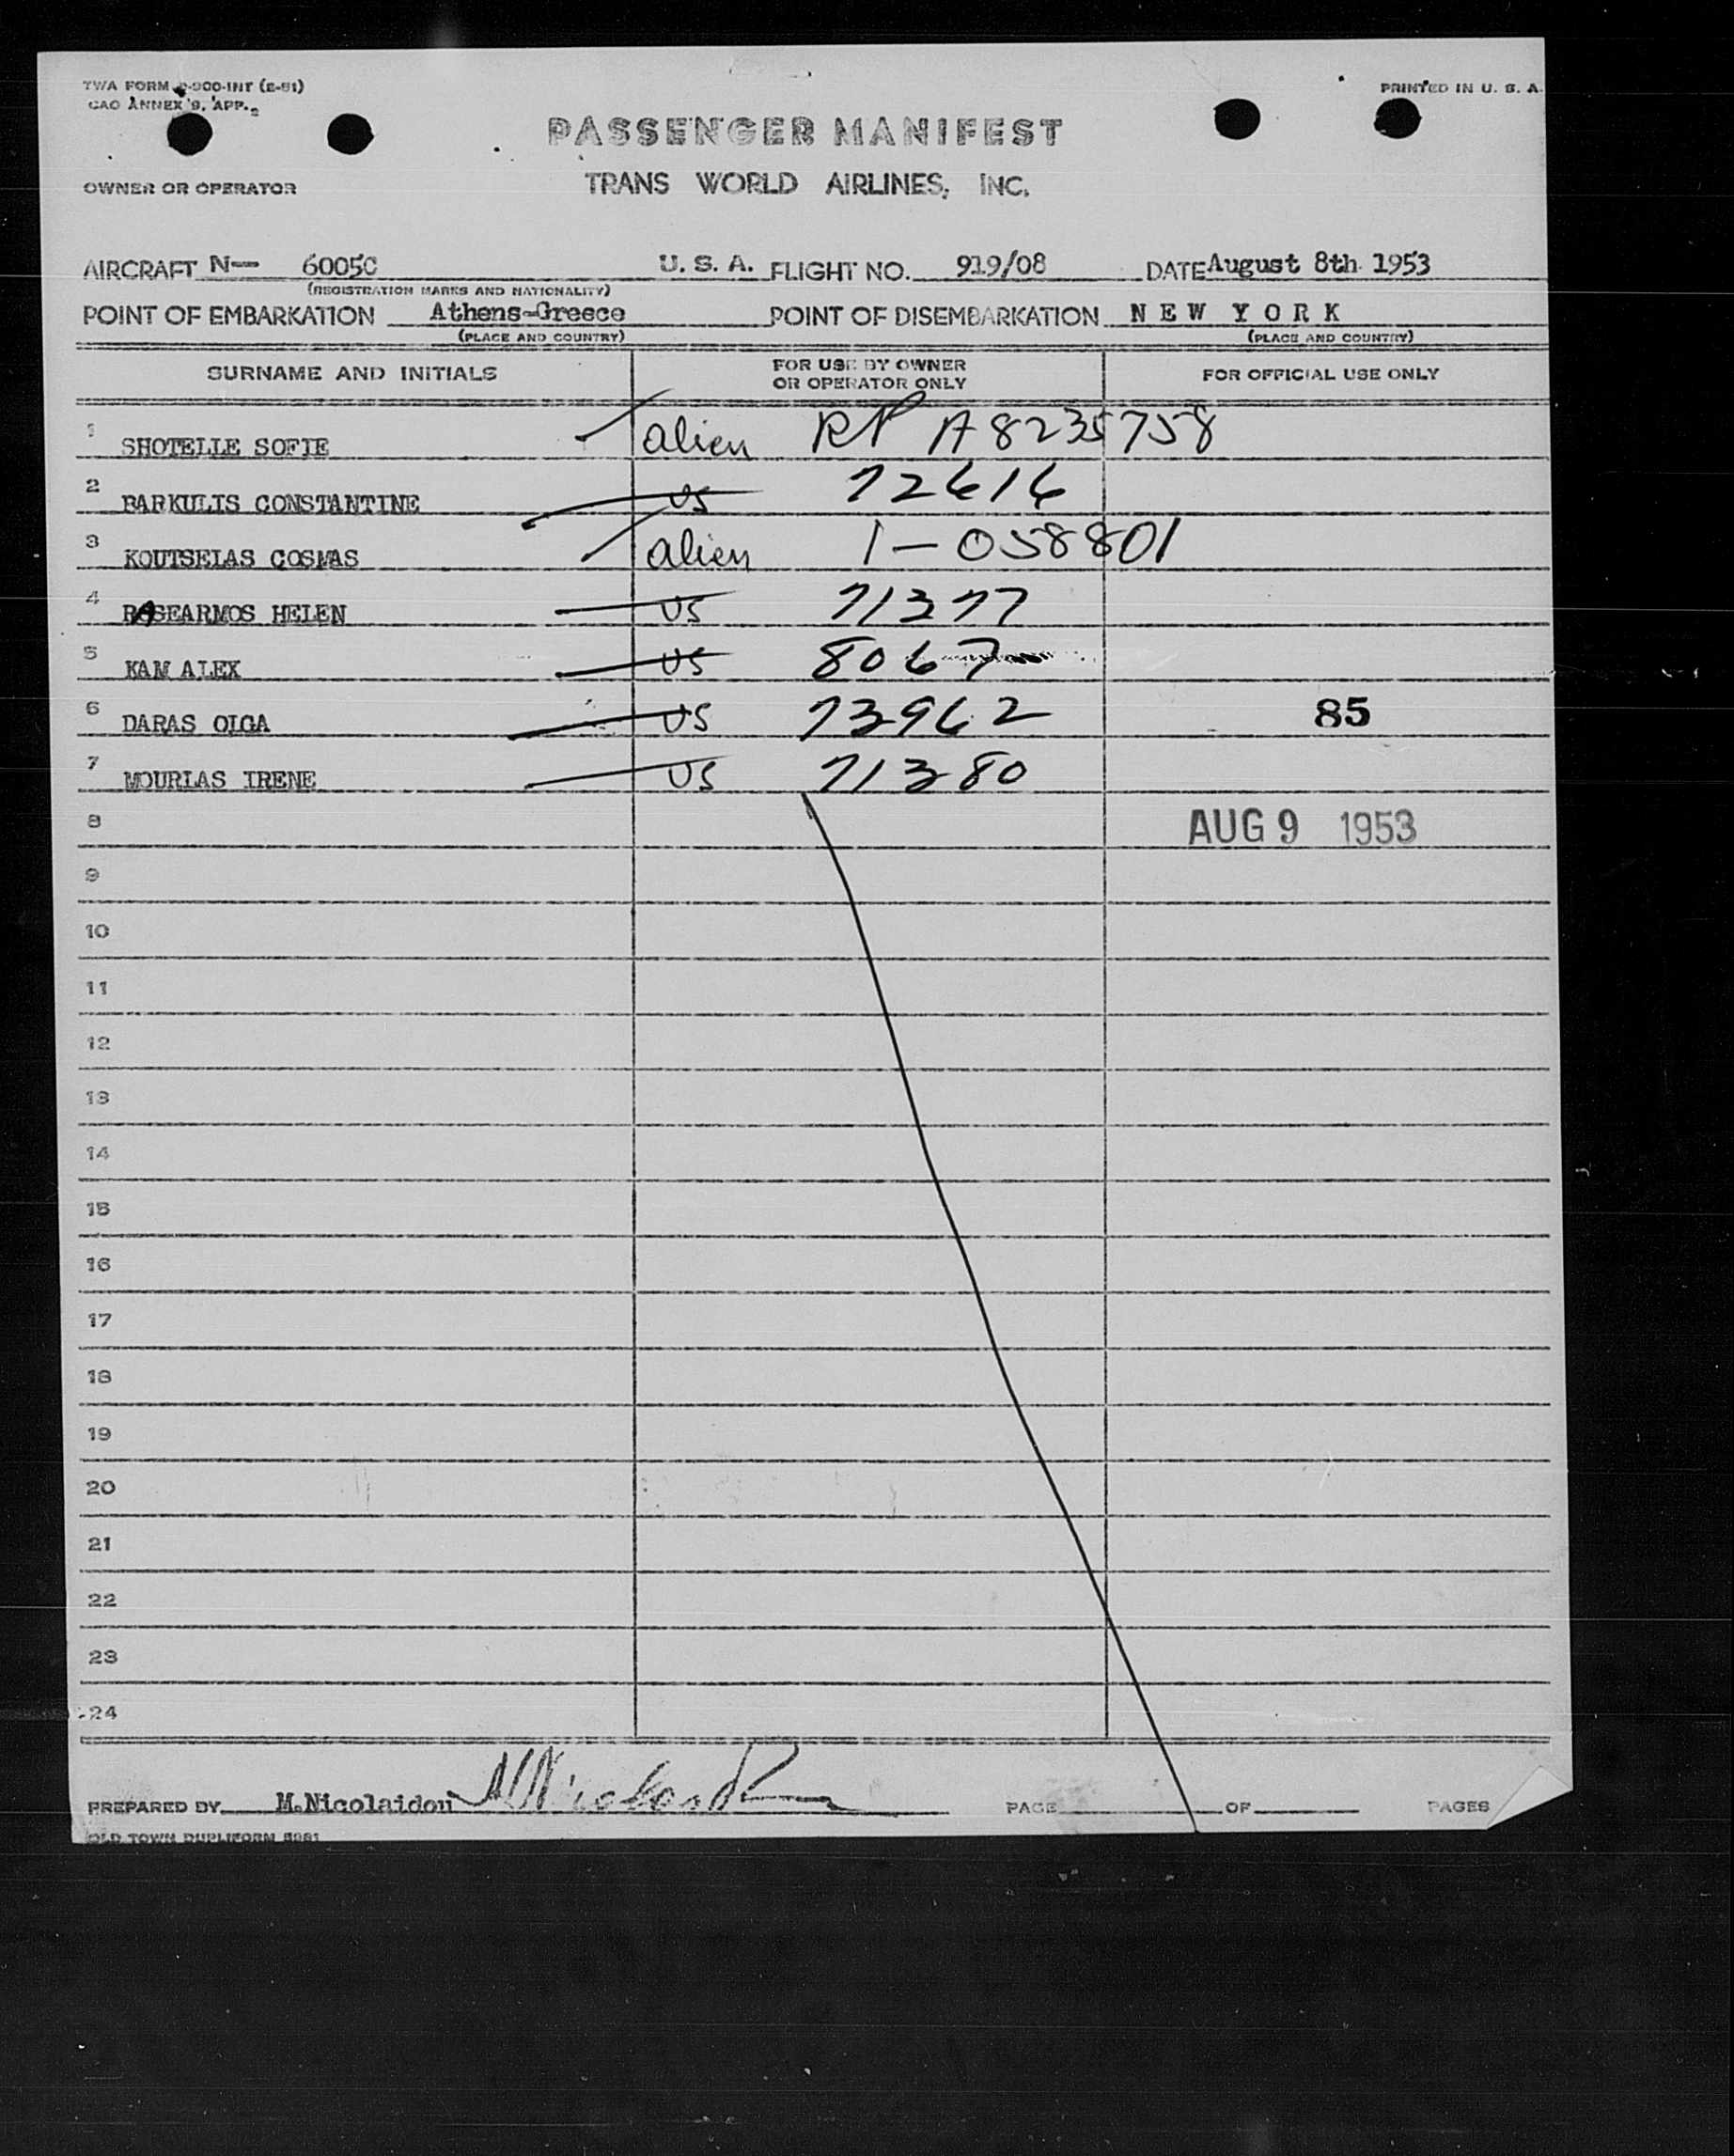 TWA FORM 2-900-INT (2-51)
PRINTED IN U. S. A.
CAO ANNEX 9, APP.
PASSENGER MANIFEST
OWNER OR OPERATOR
TRANS WORLD AIRLINES, INC.
AIRCRAFT N— 6005C U. S. A. FLIGHT NO. 919/08 DATE August 8th 1953
(REGISTRATION MARKS AND NATIONALITY)
POINT OF EMBARKATION Athens-Greece POINT OF DISEMBARKATION NEW YORK
(PLACE AND COUNTRY) (PLACE AND COUNTRY)
SURNAME AND INITIALS FOR USE BY OWNER OR OPERATOR ONLY FOR OFFICIAL USE ONLY
1 SHOTELLE SOFIE alien RP A8235758
2 BARKULIS CONSTANTINE US 72616
3 KOUTSELAS COSMAS alien 1-058801
4 RASEARMOS HELEN US 71377
5 KAM ALEX US 8067
6 DARAS OLGA US 73962 85
7 MOURLAS IRENE US 71380
8 AUG 9 1953
9
10
11
12
13
14
15
16
17
18
19
20
21
22
23
24
PREPARED BY M.Nicolaidou PAGE OF PAGES
OLD TOWN DUPLIFORM